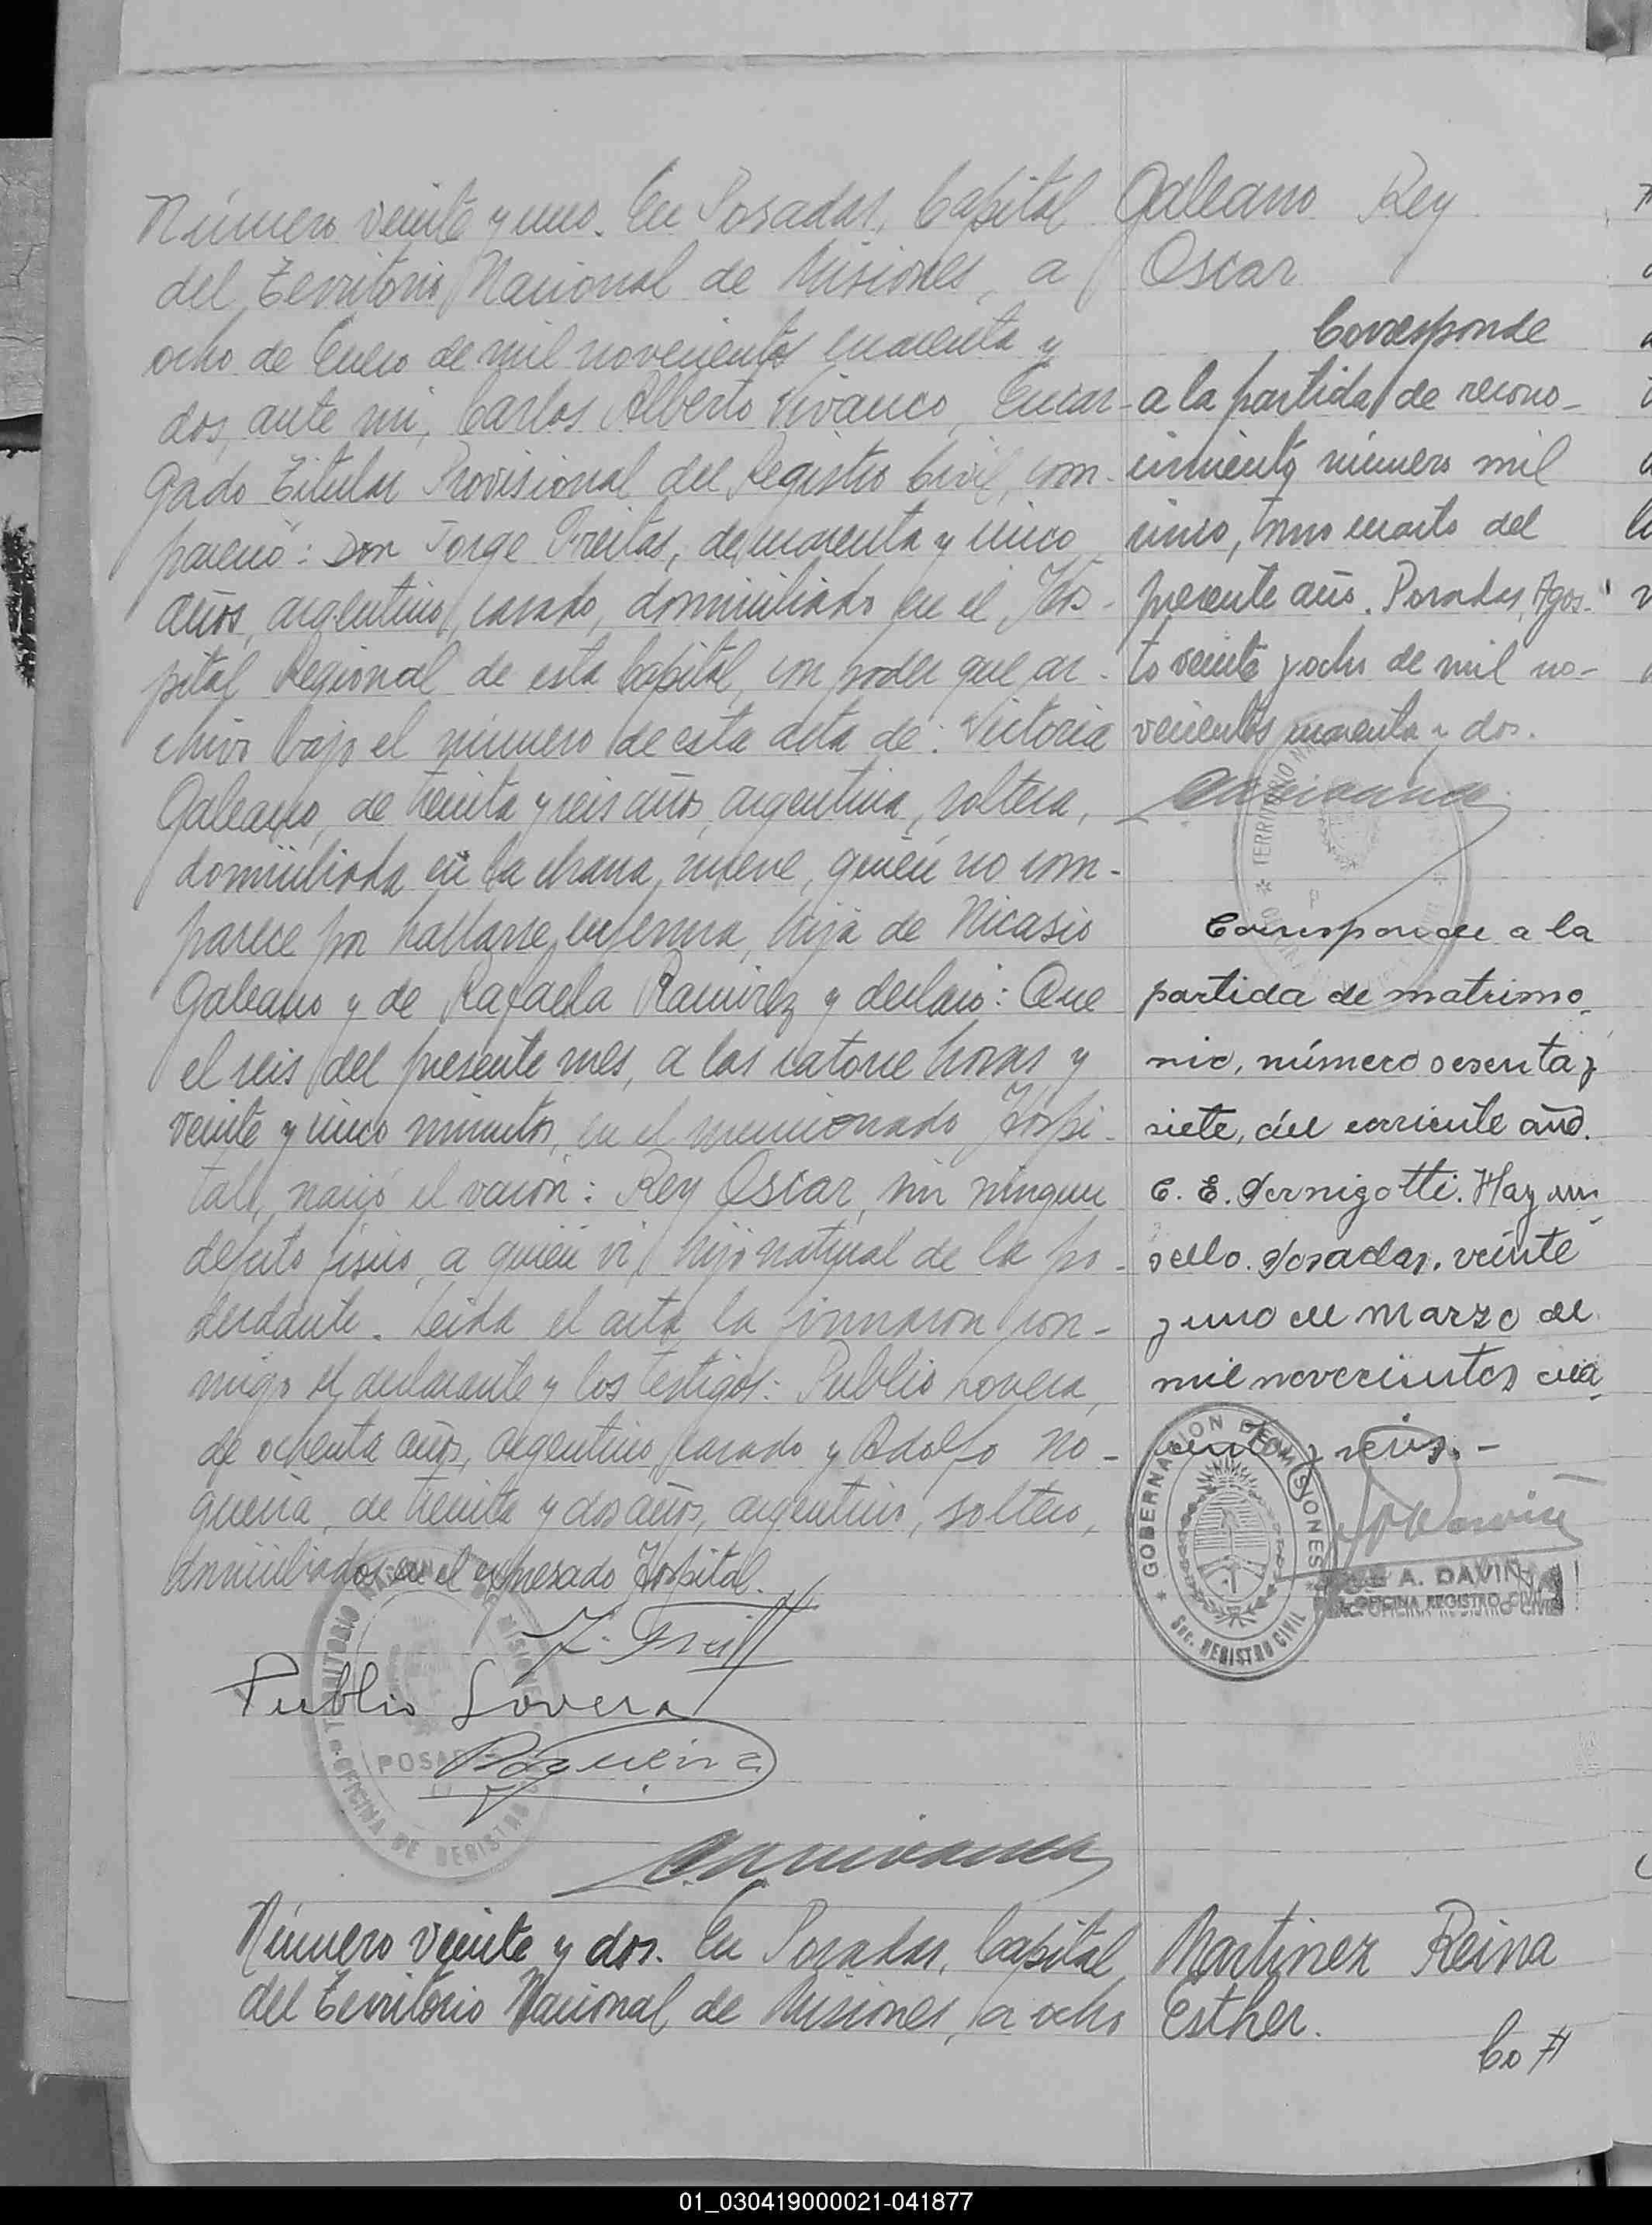 Número veinte y uno. En Posadas, Capital
del Territorio Nacional de Misiones, a
ocho de Enero de mil novecientos cuarenta y
dos, ante mi, Carlos Alberto Vivanco, Encar-
gado Titular Provisional del Registro Civil, com-
pareció: Don Jorge Freitas, de cuarenta y cinco
años, argentino, casado, domiciliado en el Hos-
pital Regional de esta Capital, con poder que ar-
chivo bajo el número de esta acta de: Victoria
Galeano, de treinta y seis años, argentina, soltera,
domiciliada en la chacra nueve, quien no com-
parece por hallarse enferma, hija de Nicasio
Galeano y de Rafaela Ramirez y declaró: Que
el seis del presente mes, a las catorce horas y
veinte y cinco minutos, en el mencionado Hospi-
tal, nació el varón: Rey Oscar, sin ningun
defecto físico, a quien vi, hijo natural de la po-
derdante. Leida el acta la firmaron con-
migo el declarante y los testigos: Publio Lovera,
de ochenta años, argentino, casado y Adolfo No-
gueira, de treinta y dos años, argentino, soltero,
domiciliados en el expresado Hospital.
Publio Lovera
POSADAS
OFICINA DE REGISTRO
Galeano Rey
Oscar
Corresponde
a la partida de recono-
cimiento número mil
cinco, tomo cuarto del
presente año. Posadas, Agos-
to veinte y ocho de mil no-
vecientos cuarenta y dos.
Corresponde a la
partida de matrimo-
nio, número sesenta y
siete, del corriente año.
C. E. Pernigotti. Hay un
sello. Posadas, veinte
y uno de Marzo de
mil novecientos cua-
renta y seis.-
GOBERNACION DE MISIONES
Sec. REGISTRO CIVIL
A. DAVIÑA
OFICINA REGISTRO CIVIL
Número veinte y dos. En Posadas, Capital
del Territorio Nacional de Misiones, a ocho
Martinez Reina
Esther.
Co
01_030419000021-041877